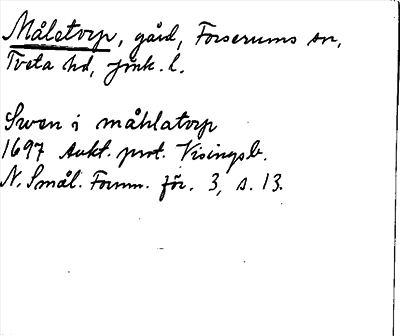 Målatorp, gård, Forserums sn,
Tveta hd, Jönk. l.
Swen i måhlatorp
1697 Aukt. prot. Visingsb.
N. Smål. Fornm. för. 3, s. 13.